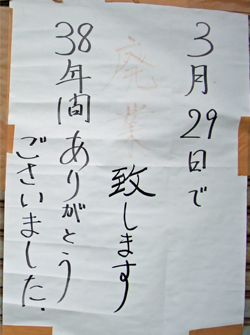 3月29日で
廃業
致します
38年間ありがとう
ございました.